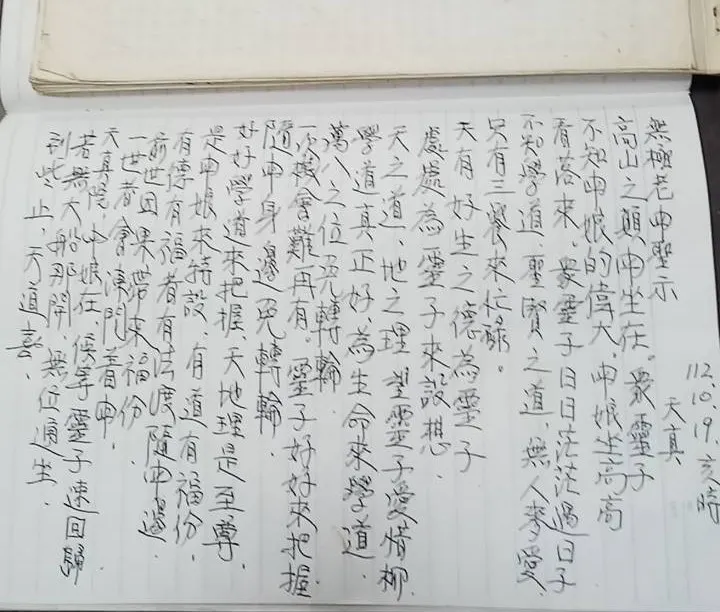 112.10.19.亥時
天真
無極老申聖示
高山之顛申坐在。眾靈子
不知申娘的偉大、申娘坐高高
看落來。眾靈子日日茫茫過日子
不知學道、聖賢之道、無人來愛、
只有三餐來忙碌。
天有好生之德為靈子
處處為靈子來設想、
天之道、地之理 望靈子愛惜
學道真正好、為生命來學道、
萬八之位免轉輪、
一次機會難再有。靈子好好來把握、
隨申身邊免轉輪、
好好學道來把握、天地理是至尊、
是申娘來特設、有道有福份、
有傳有福者有法渡隨申邊、
前世因果帶來福份、
一世者會凍鬥看申、
天真院、申娘在、候等靈子速回歸
若無大船那開、無位通坐、
到此止、天道喜